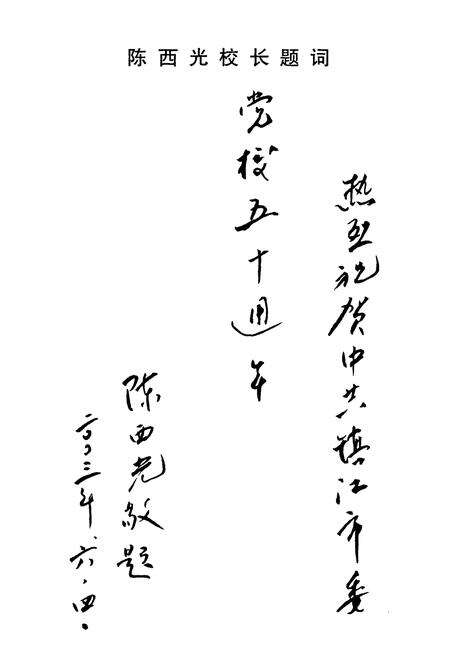 陈西光校长题词
热烈祝贺中共镇江市委
党校五十週年
陈西光敬题
二〇〇三年、六、四、